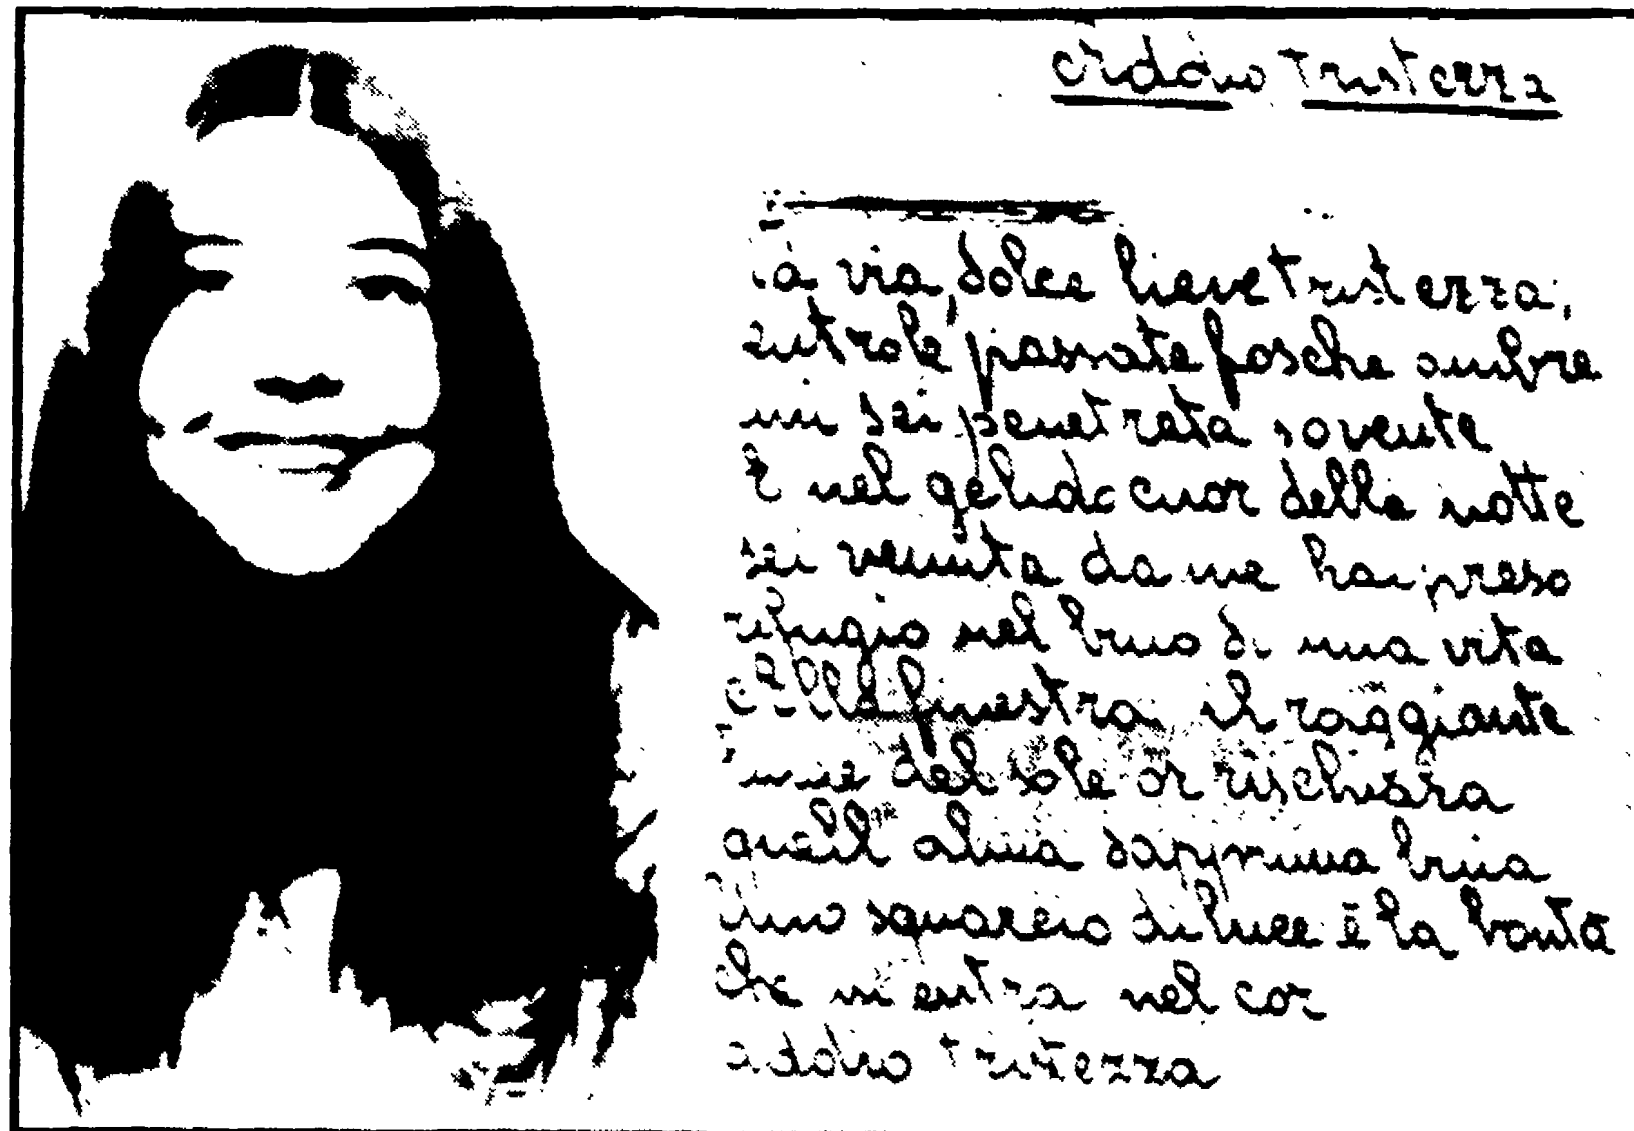 addio Tristezza
và via, dolce lieve tristezza,
entro le passate fosche ombre
mi sei penetrata sovente
E nel gelido cuor della notte
sei venuta da me hai preso
rifugio nel buio di una vita
dalla finestra il raggiante
lume del sole or rischiara
quell'alma dapprima buia
Uno squarcio di luce è la bontà
che vi entra nel cor
addio tristezza